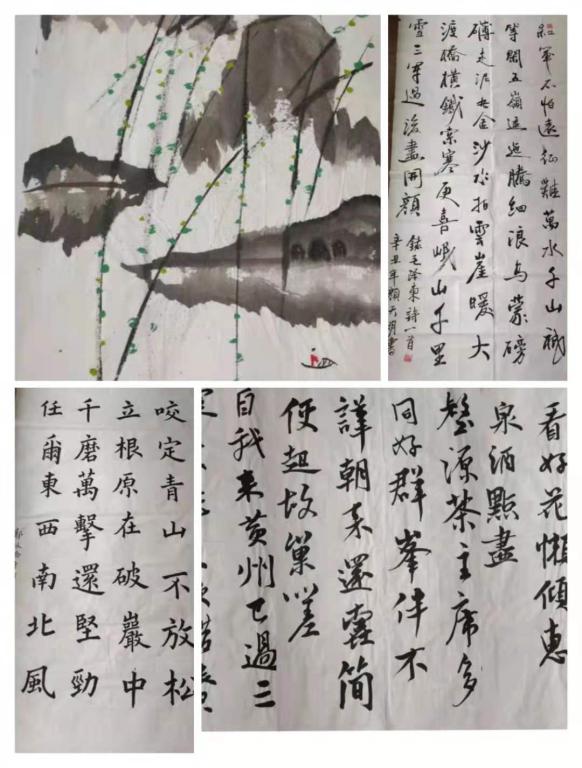 紅軍不怕遠征難萬水千山祇
等閒五嶺逶迤騰細浪烏蒙磅
礴走泥丸金沙水拍雲崖暖大
渡橋橫鐵索寒更喜岷山千里
雪三軍過後盡開顏
錄毛澤東詩一首
辛丑年
咬定青山不放松
立根原在破巖中
千磨萬擊還堅勁
任爾東西南北風
看好花懶傾惠
泉酒點盡
壑源茶主席多
同好群峯伴不
譁朝来還露簡
便起故巢嗟
自我来黄州已過三